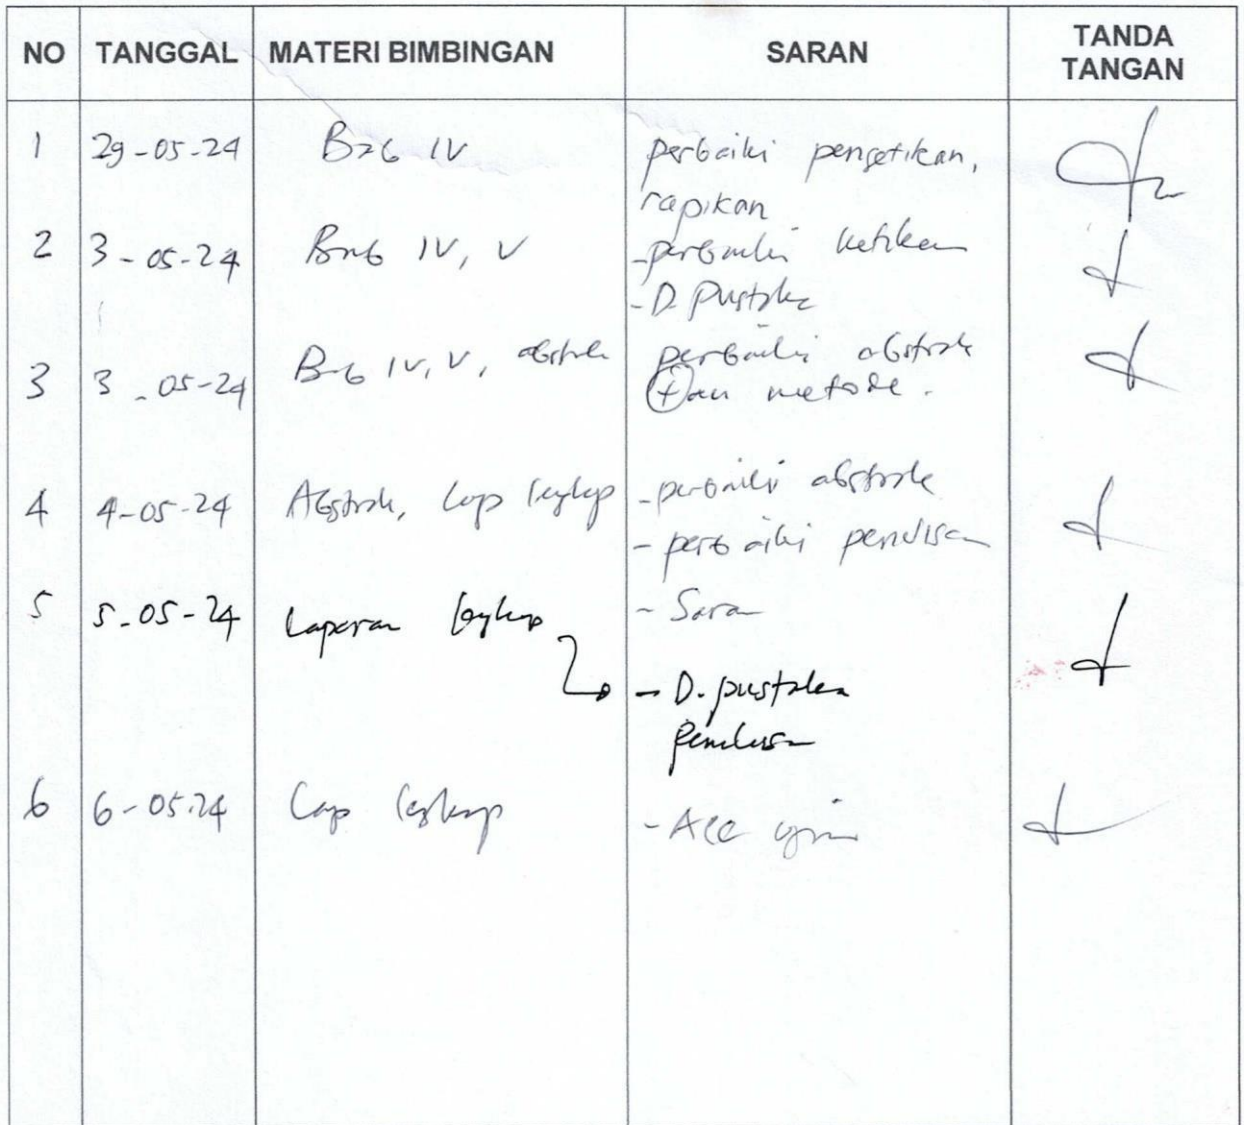 NO TANGGAL MATERI BIMBINGAN SARAN TANDA TANGAN
1 29-05-24 Bab IV perbaiki pengetikan,
rapikan
2 3-05-24 Bab IV, V -perbaiki ketikan
-D. Pustaka
3 3-05-24 Bab IV, V, abstrak perbaiki abstrak
dan metode.
4 4-05-24 Abstrak, Lap lengkap -perbaiki abstrak
- perbaiki penulisan
5 5-05-24 Laporan lengkap - Saran
- D. pustaka
penulisan
6 6-05-24 Lap lengkap - Acc ujian